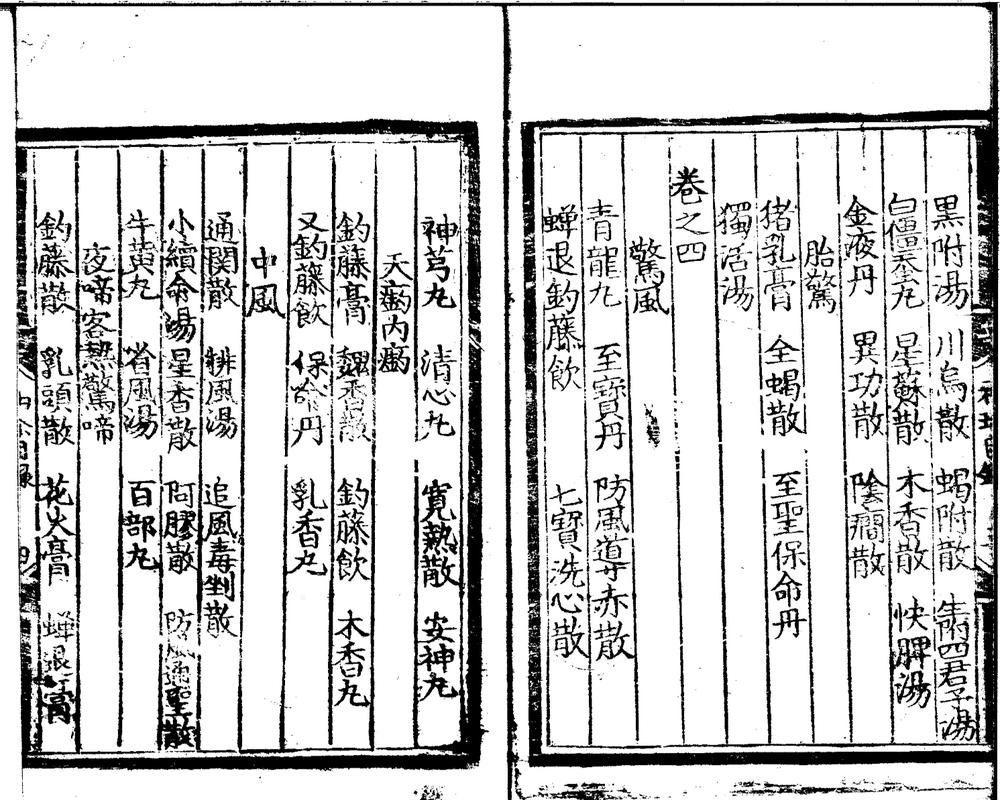 黒附湯 川烏散 蝎附散 生附四君子湯
白僵蚕丸 星蘇散 木香散 快脾湯
金液丹 異功散 陰癇散
胎驚
猪乳膏 全蝎散 至聖保命丹
獨活湯
卷之四
驚風
青龍丸 至寶丹 防風導赤散
蟬退釣藤飲 七寶洗心散
神芎丸 清心丸 寛熱散 安神丸
天釣內瘹
釣藤膏 魏香散 釣藤飲 木香丸
又釣藤飲 保命丹 乳香丸
中風
通関散 排風湯 追風毒剉散
小續命湯 星香散 阿膠散 防風通聖散
牛黄丸 省風湯 百部丸
夜啼客熱驚啼
釣藤散 乳頭散 花火膏 蟬退膏